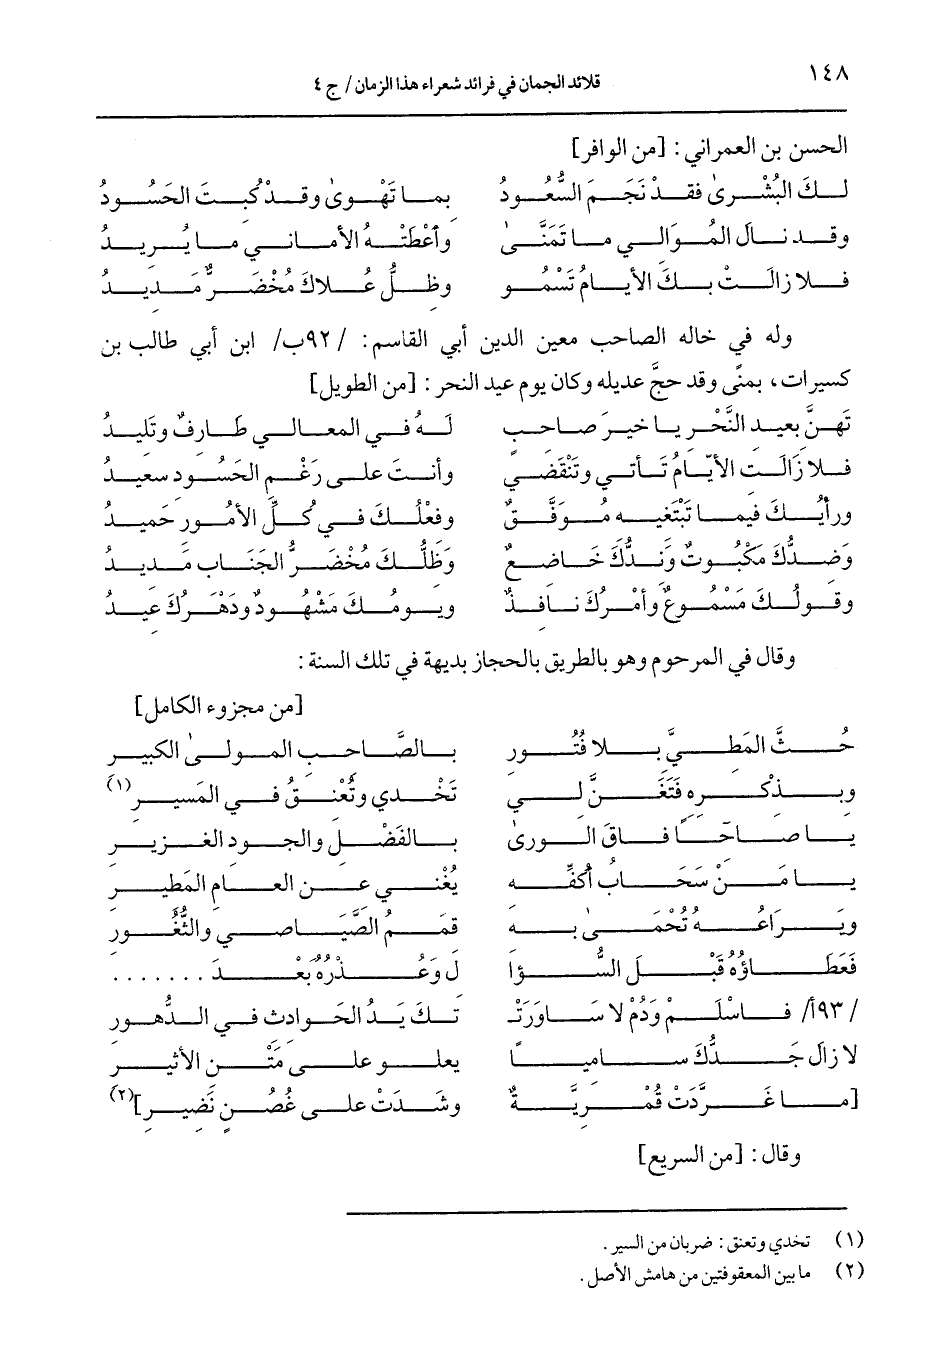 ١٤٨
قلائد الجمان في فرائد شعراء هذا الزمان/ ج ٤
الحسن بن العمراني: [من الوافر]
لكَ البُشْرىٰ فقدْ نَجَمَ السُّعُودُ بما تَهْوىٰ وقدْ كُبِتَ الحَسُودُ
وقد نالَ المُوَالي ما تَمَنَّىٰ وأعْطَتْهُ الأماني ما يُريدُ
فلا زالَتْ بكَ الأيامُ تَسْمُو وظِلُّ عُلاكَ مُخْضَرٌّ مَديدُ
وله في خاله الصاحب معين الدين أبي القاسم: /٩٢ب/ ابن أبي طالب بن
كسيرات، بمنًى وقد حجَّ عديله وكان يوم عيد النحر: [من الطويل]
تَهنَّ بعيدِ النَّحْرِ يا خيرَ صاحبٍ لَهُ في المعالي طَارفٌ وتَليدُ
فلا زَالَتِ الأيّامُ تَأتي وتَنْقَضي وأنتَ على رَغْمِ الحَسُودِ سعيدُ
ورأيُكَ فيما تَبْتَغيهِ مُوَفَّقٌ وفعْلُكَ في كُلِّ الأمُورِ حَميدُ
وَضدُّكَ مَكْبُوتٌ وَندُّكَ خَاضعٌ وَظلُّكَ مُخْضَرُّ الجَنَابِ مَديدُ
وقولُكَ مَسْمُوعٌ وأمْرُكَ نافذٌ ويومُكَ مَشْهُودٌ ودَهْرُكَ عيدُ
وقال في المرحوم وهو بالطريق بالحجاز بديهة في تلك السنة:
[من مجزوء الكامل]
حُثَّ المَطِيَّ بِلا فُتُورِ بالصَّاحبِ المولىٰ الكبيرِ
وبذكْرِهِ فَتَغَنَّ لي تَخْدي وتُعْنِقُ في المَسيرِ(١)
يا صاحبًا فاقَ الورىٰ بالفَضْلِ والجودِ الغزيرِ
يا مَنْ سَحَابُ أكُفِّهِ يُغْني عنِ العامِ المَطيرِ
ويَراعُهُ تُحْمَىٰ بهِ قمَمُ الصَّيَاصي والثُّغُورِ
فَعَطاؤُهُ قَبْلَ السُّؤا لِ وَعُذْرُهُ بَعْدَ.......
/٩٣أ/ فاسْلَمْ وَدُمْ لا سَاوَرَتْـ ـكَ يَدُ الحوادثِ في الدُّهورِ
لا زالَ جَدُّكَ ساميًا يعلو على مَتْنِ الأثيرِ
[ما غَرَّدَتْ قُمْريَّةٌ وشَدَتْ على غُصْنٍ نَضيرِ](٢)
وقال: [من السريع]
(١) تخدي وتعنق: ضربان من السير.
(٢) ما بين المعقوفتين من هامش الأصل.